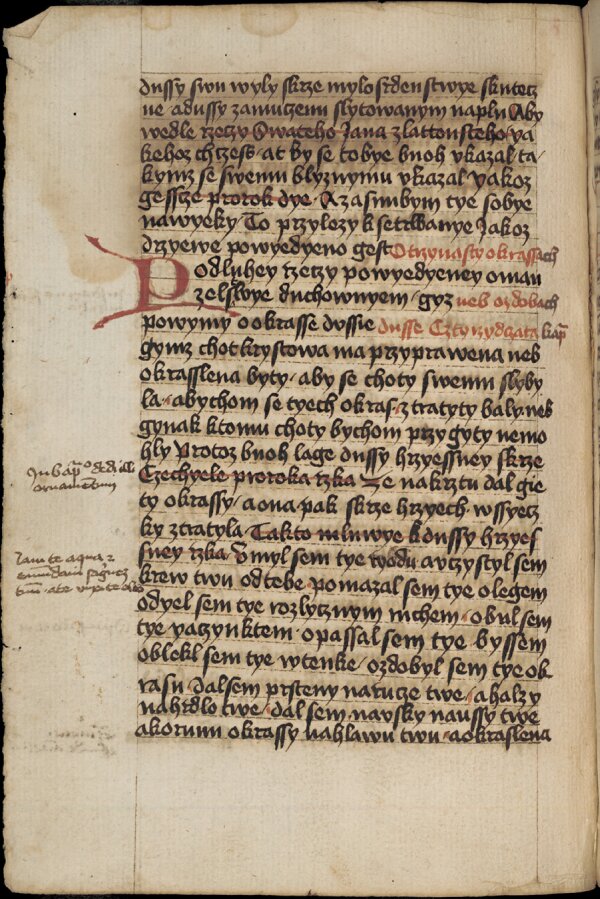 dussy swu wyly skrze mylosrdenstwye skutecz
ne a dussy zamuczenu slytowanym naplň Aby
wedle rzeczy Swateho Jana zlattousteho ya
kehoz chczess at by se tobye buoh vkazal ta
kymz se swemu blyznymu vkazal yakoz
gessze prorok dye A zasnubym tye sobye
nawyeky To przylezy k setrwanye Jakoz
drzyewe powyedyeno gest O trzynasty okrassach
Podluhey rzeczy powyedyeney o man
zelstwye duchownyem gyz neb ozdobach
powymy o okrasse dussie dusse Cztyrzydczata kap
gymz chot krystowa ma przyprawena neb
okrasslena byty aby se choty swemu slyby
la abychom se tyech okras ztratyty baly neb
gynak k tomu choty bychom przygyty nemo
hly Protoz buoh lage dussy hrzyessney skrze
Ezechyele proroka rzka Ze na krztu dal gie
ty okrassy a ona pak skrze hrzyech wssyecz
ky ztratyla Takto mluwye k dussy hrzyes
sney rzka Vmyl sem tye wodu a vczystyl sem
krew twu od tebe pomazal sem tye olegem
odyel sem tye rozlycznym ruchem obul sem
tye yaczynktem opassal sem tye byssem
oblekl sem tye w tenke ozdobyl sem tye ok
rasu dal sem prsteny na rucze twe a halzy
na hrdlo twe dal sem navsky na vssy twe
a korunu okrassy na hlawu twu a okraslena
ornamentum
Laui te aqua et